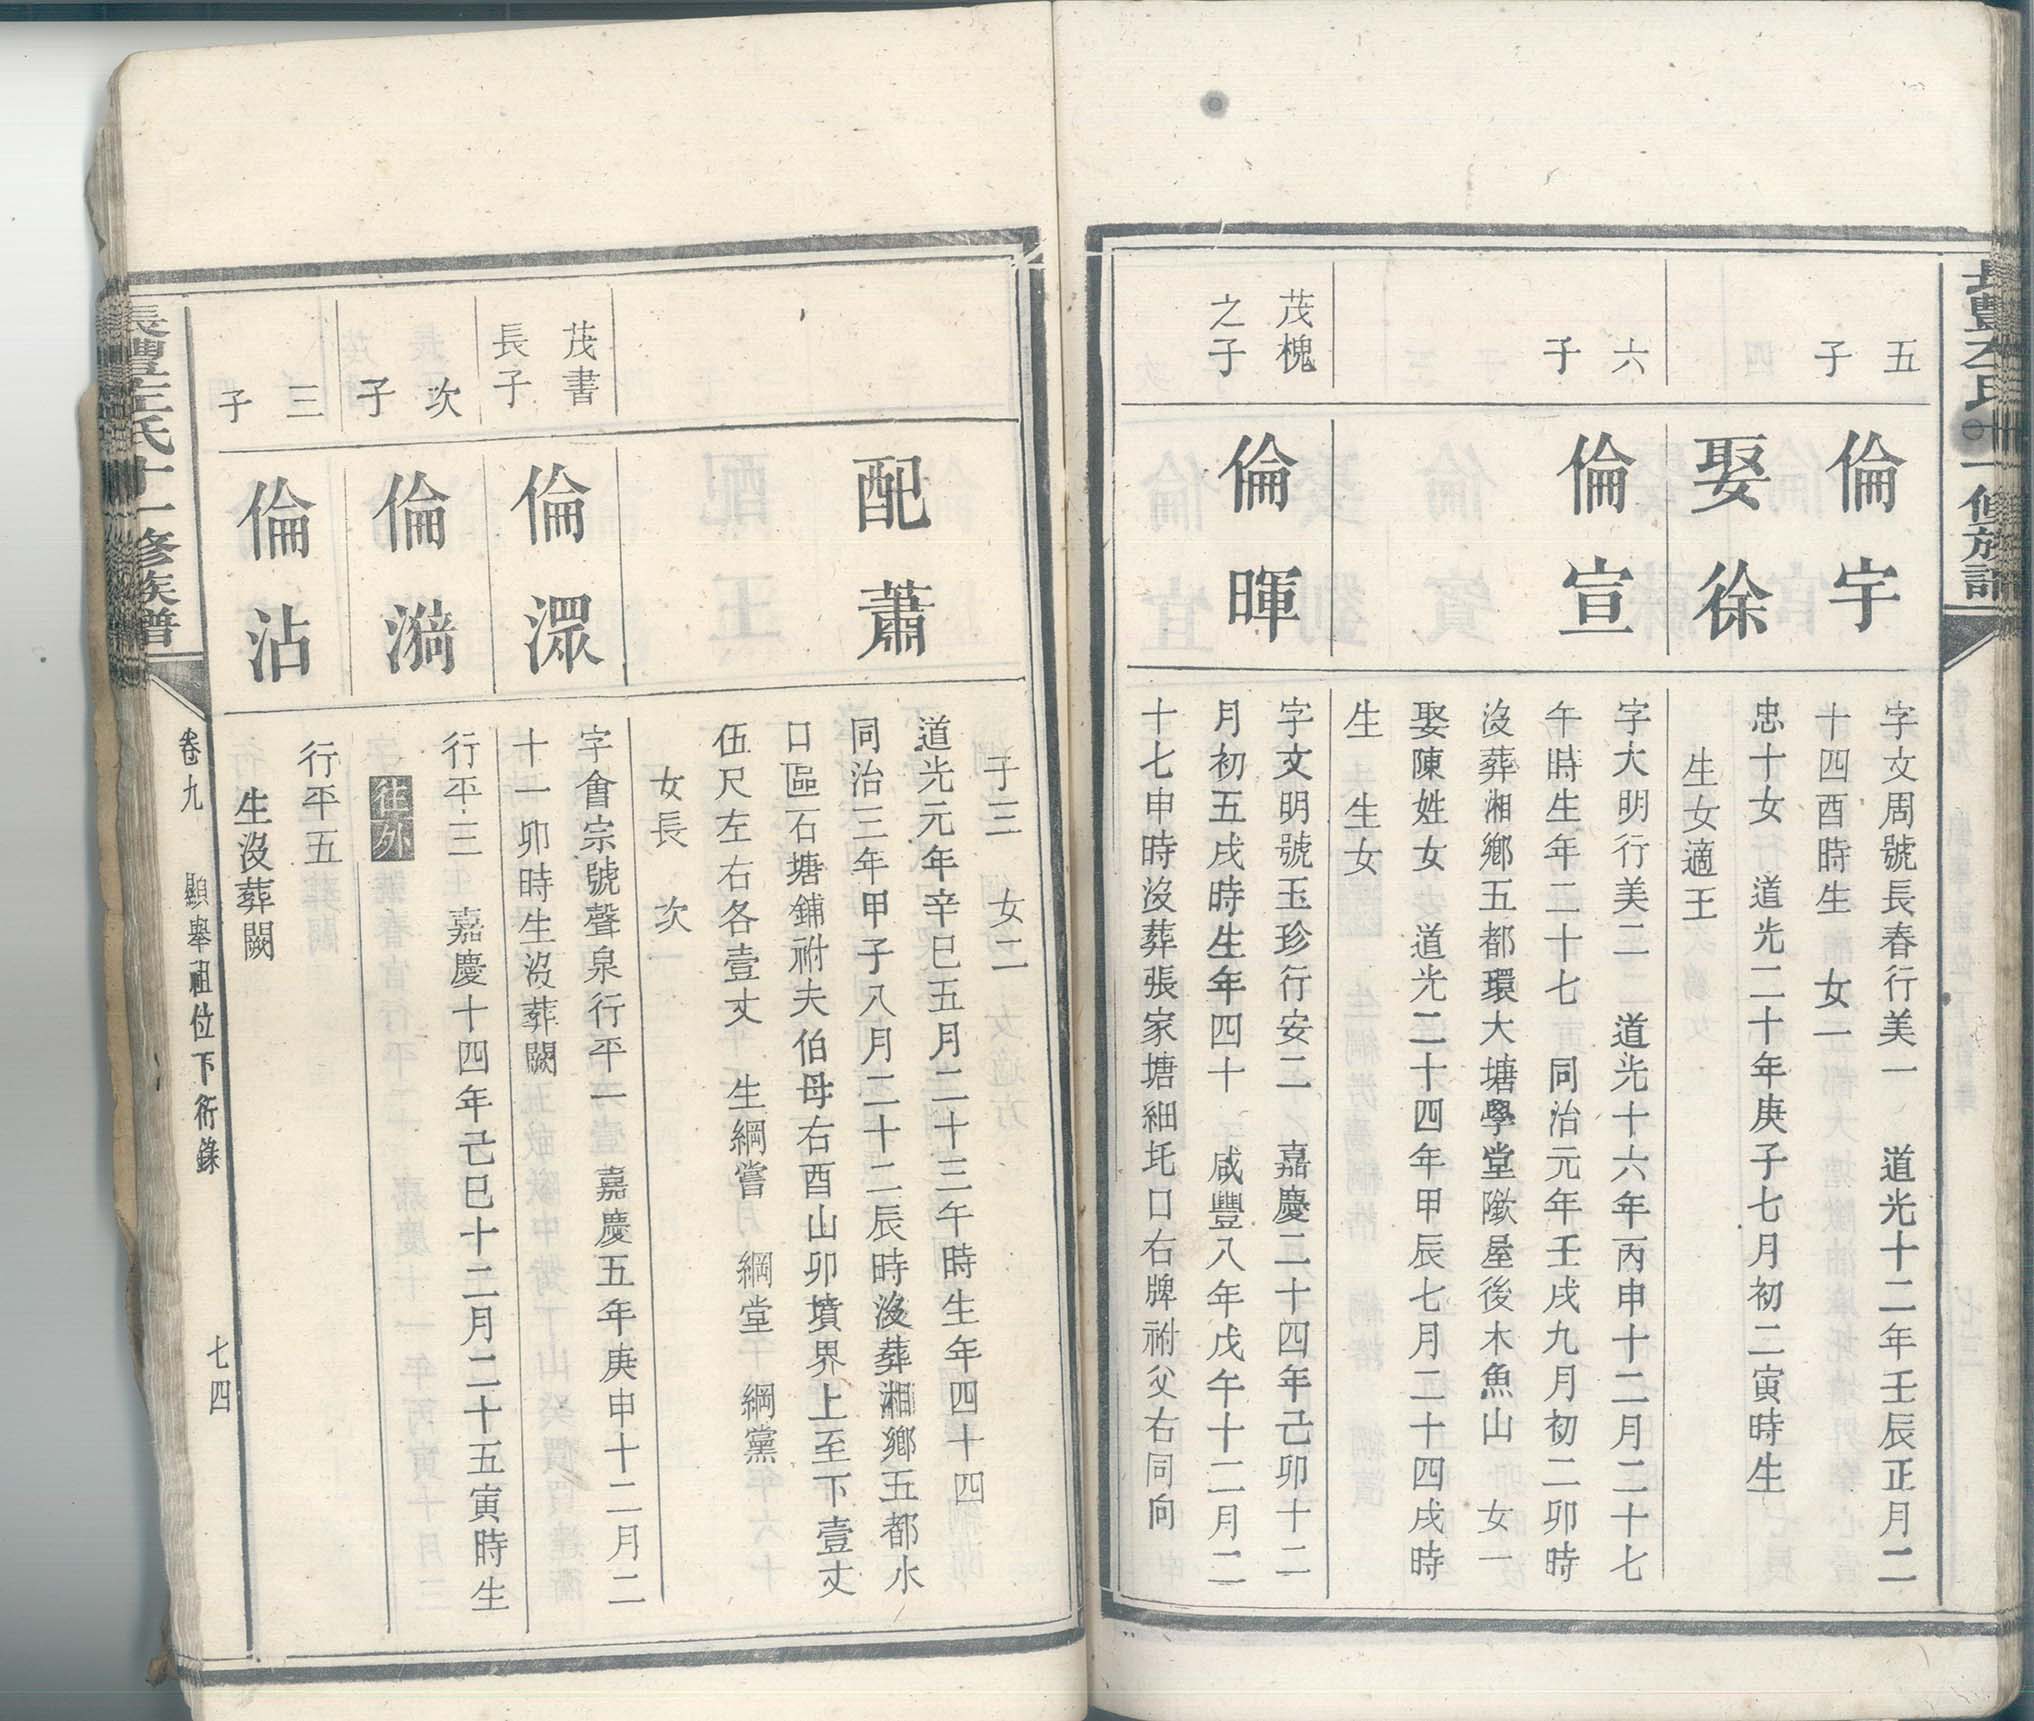 五
子
倫宇
字文周號長春行美一　道光十二年壬辰正月二
十四酉時生　女一
娶徐
忠十女　道光二十年庚子七月初二寅時生
生女適王
六
子
倫宣
字大明行美二　道光十六年丙申十二月二十七
午時生年二十七　同治元年壬戌九月初二卯時
沒葬湘鄉五都環大塘學堂墩屋後木魚山　女一
娶陳姓女　道光二十四年甲辰七月二十四戌時
生　生女
茂槐
之子
倫暉
字文明號玉珍行安二　嘉慶二十四年己卯十二
月初五戌時生年四十　咸豐八年戊午十二月二
十七申時沒葬張家塘細圫口右牌祔父右同向
子三　女二
配蕭
道光元年辛巳五月二十三午時生年四十四
同治三年甲子八月二十二辰時沒葬湘鄉五都水
口區石塘鋪祔夫伯母右酉山卯墳界上至下壹丈
伍尺左右各壹丈　生綱嘗　綱堂　綱黨
女長　次
茂書
長子
倫濴
字會宗號聲泉行平一　嘉慶五年庚申十二月二
十一卯時生沒葬闕
次
子
倫漪
行平三　嘉慶十四年己巳十二月二十五寅時生
往外
三
子
倫沾
行平五
生沒葬闕
長豐左氏十一修族譜
卷九　顯舉祖位下衍錄　七四